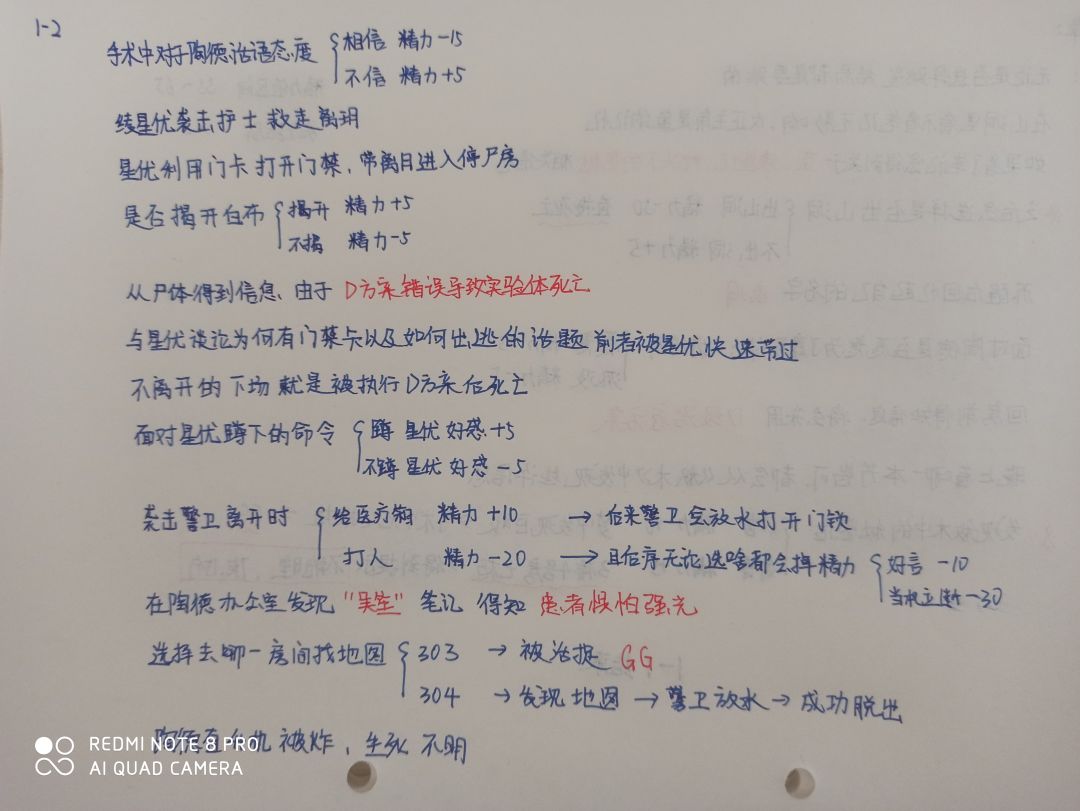 1-2
手术中对于陶德治语态度 相信 精力-15
不信 精力+5
绫星优袭击护士 救走离玥
星优利用门卡打开门禁，带离月进入停尸房
是否揭开白布 揭开 精力+5
不揭 精力-5
从尸体得到信息、由于D方案错误导致实验体死亡
与星优谈论为何有门禁卡以及如何出逃的话题 前者被星优快速带过
不离开的下场就是被执行D方案后死亡
面对星优蹲下的命令 蹲 星优好感+5
不蹲 星优好感-5
袭击警卫离开时 给医疗箱 精力+10 → 后来警卫会放水打开门锁
打人 精力-20 → 且后序无论选啥都会掉精力 好言-10
当机立断-30
在陶德办公室发现"吴笙"笔记 得知 患者惧怕强光
选择去哪一房间找地图 303 → 被治捉 GG
304 → 发现地图 → 警卫放水 → 成功脱出
陶德直升机被炸，生死不明
REDMI NOTE 8 PRO
AI QUAD CAMERA